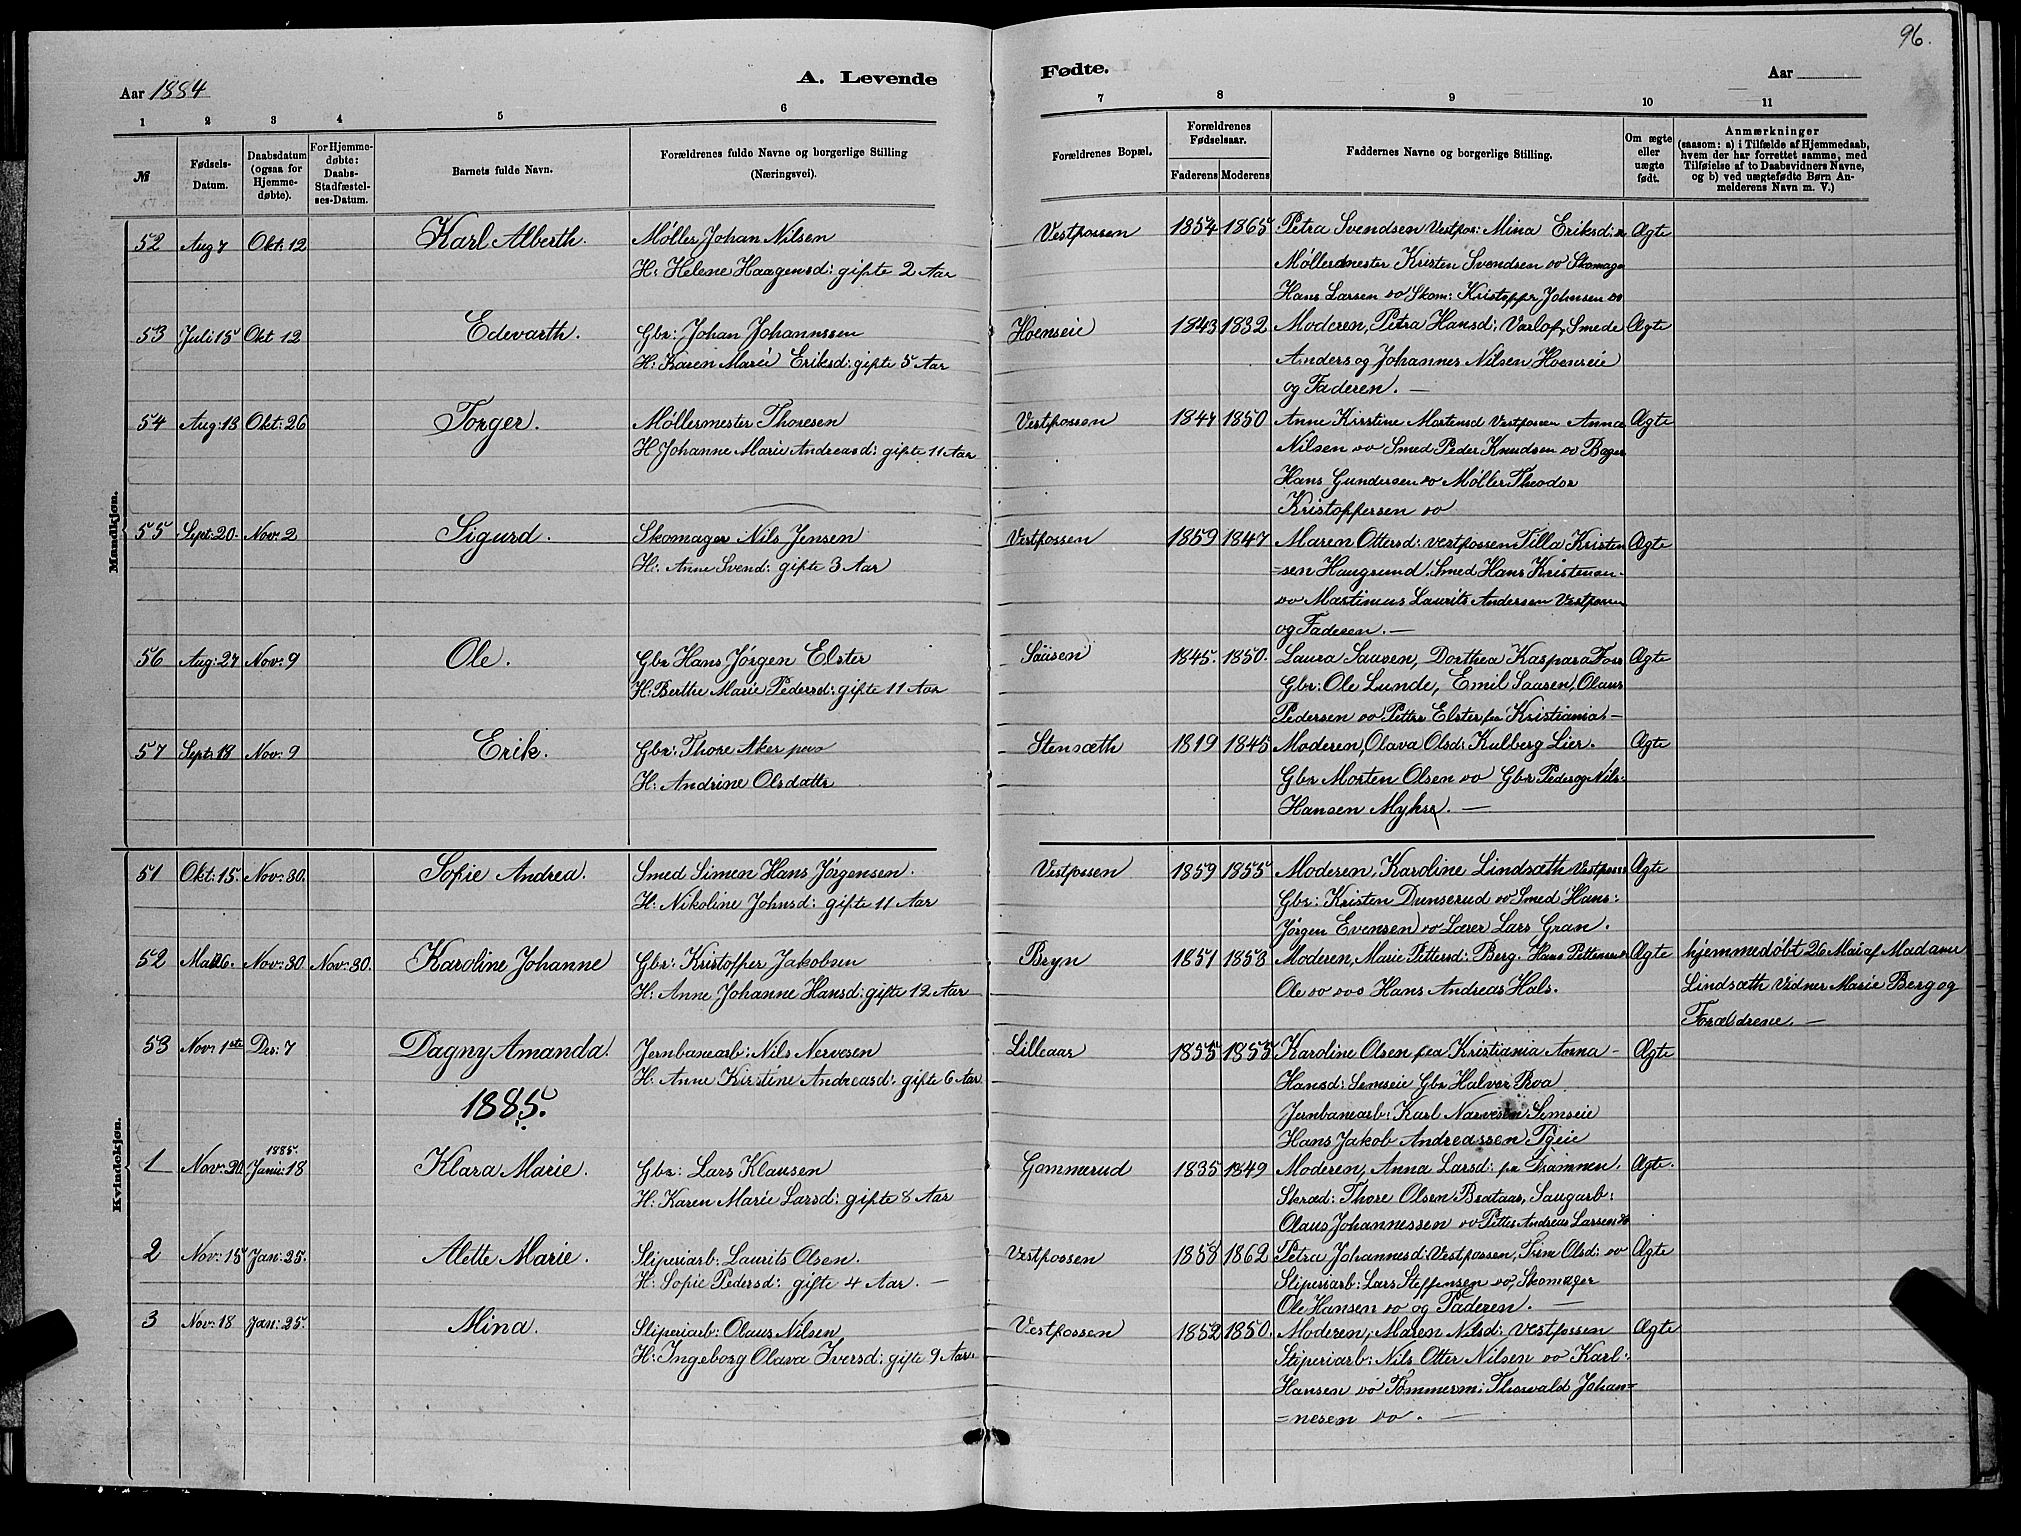 96.
Aar 1884
A. Levende
Fødte.
Aar
1 2 3 4 5 6 7 8 9 10 11
№
Fødsels-Datum.
Daabsdatum (ogsaa for Hjemmedøbte).
For Hjemmedøbte: Daabs-Stadfæstelses-Datum.
Barnets fulde Navn.
Forældrenes fulde Navne og borgerlige Stilling (Næringsvei).
Forældrenes Bopæl.
Forældrenes Fødselsaar.
Faderens Moderens
Faddernes Navne og borgerlige Stilling.
Om ægte eller uægte født.
Anmærkninger
(saasom: a) i Tilfælde af Hjemmedaab, hvem der har forrettet samme, med Tilføielse af to Daabsvidners Navne, og b) ved uægtefødte Børn Anmelderens Navn m. V.)
Mandkjøn.
52 Aug 7 Okt: 12 Karl Alberth. Møller Johan Nilsen Vestfossen 1854 1865 Petra Svendsen Vestfos: Mina Eriksd: Ægte
H: Helene Haagensd: gifte 2 Aar Møllermester Kristen Svendsen do Skomager
Hans Larsen do Skom: Kristoffer Johnsen do
53 Juli 15 Okt 12 Edevarth. Gbr: Johan Johannssen Hoenseie 1843 1832 Moderen, Petra Hansd: Varlof, Smede Ægte
H: Karen Marie Eriksd: gifte 5 Aar Anders og Johannes Nilsen Hoenseie
og Faderen. —
54 Aug: 13 Okt: 26 Torger. Møllermester Thoresen Vestfossen 1847 1850 Anne Kirstine Mortensd Vestfossen Anna Ægte
H Johanne Marie Andreasd: gifte 11 Aar Nilsen do Smed Peder Knudsen do Bager
Hans Gundersen do Møller Theodor
Kristoffersen do
55 Sept: 20. Nov: 2 Sigurd. Skomager Nils Jensen Vestfossen 1859 1847 Maren Ottersd: vestfossen Tilla Kristen Ægte
H: Anne Svend: gifte 3 Aar =sen Haugsund. Smed Hans Kristensen
do Martinius Laurits Andersen Vestfossen
og Faderen. —
56 Aug: 27 Nov: 9 Ole. Gbr Hans Jørgen Elster Sausen 1845. 1850. Laura Sausen, Dorthea Kaspara Foss Ægte
H: Berthe Marie Pedersd: gifte 11 Aar Gbr: Ole Lunde, Emil Sausen, Olaus
Pedersen do Petter Elster fra Kristiania —
57 Sept: 18 Nov: 9 Erik. Gbr: Thore Aker Stensæth 1819 1845 Moderen, Olava Olsd: Kulberg Lier. Ægte
H: Andrine Olsdattr Gbr Morten Olsen do Gbr Peder og Nils
Hansen Myhre. —
Kvindekjøn.
51 Okt: 15. Nov: 30. Sofie Andrea. Smed Simen Hans Jørgensen. Vestfossen 1859 1855 Moderen, Karoline Lindsæth Vestfossen Ægte
H: Nikoline Johnsd: gifte 11 Aar Gbr: Kristen Dunserud do Smed Hans:
Jørgen Evensen do Lærer Lars Gran.
52 Mai 26. Nov: 30 Nov: 30. Karoline Johanne Gbr: Kristoffer Jakobsen Bryn 1851 1853 Moderen, Marie Pettersd: Berg. Hans Pettersen do Ægte hjemmedøbt 26 Mai af Madame
H: Anne Johanne Hansd: gifte 12 Aar Ole do do Hans Andreas Hals. Lindsæth Vidner Marie Berg og
Forældrene. —
53 Nov: 1ste Des: 7 Dagny Amanda. Jernbanearb: Nils Nervesen Lilleaas 1855 1855 Karoline Olsen fra Kristiania Anna Ægte
H: Anne Kirstine Andreasd: gifte 6 Aar Hansd: Semseie Gbr Halvor Roa
1885. Jernbanearb: Karl Narvesen Semseie
Hans Jakob Andreassen
1 Nov: 20. 1885. Janu: 18 Klara Marie. Gbr: Lars Klausen Gommerud 1835 1849 Moderen, Anna Larsd: fra Drammen. Ægte.
H: Karen Marie Larsd: gifte 8 Aar Skræd: Thore Olsen Brataas, Saugarb:
Olaus Johannessen do Petter Andreas Larsen do
2 Nov: 15 Jan: 25. Alette Marie. Sliperiarb: Laurits Olsen. Vestfossen 1858 1862 Petra Johannesd: Vestfossen, Trine Olsd: do Ægte
H: Sofie Pedersd: gifte 4 Aar. — Sliperiarb: Lars Steffensen do, Skomager
Ole Hansen do og Faderen. —
3 Nov: 18 Jan: 25. Mina. Sliperiarb: Olaus Nilsen Vestfossen 1852 1850. Moderen, Maren Nilsd: vestfossen Ægte
H: Ingeborg Olava Iversd: gifte 9 Aar. Sliperiarb: Nils Otter Nilsen do Karl:
Hansen do Tømmerm: Thorvald Johan=
=nesen do. —